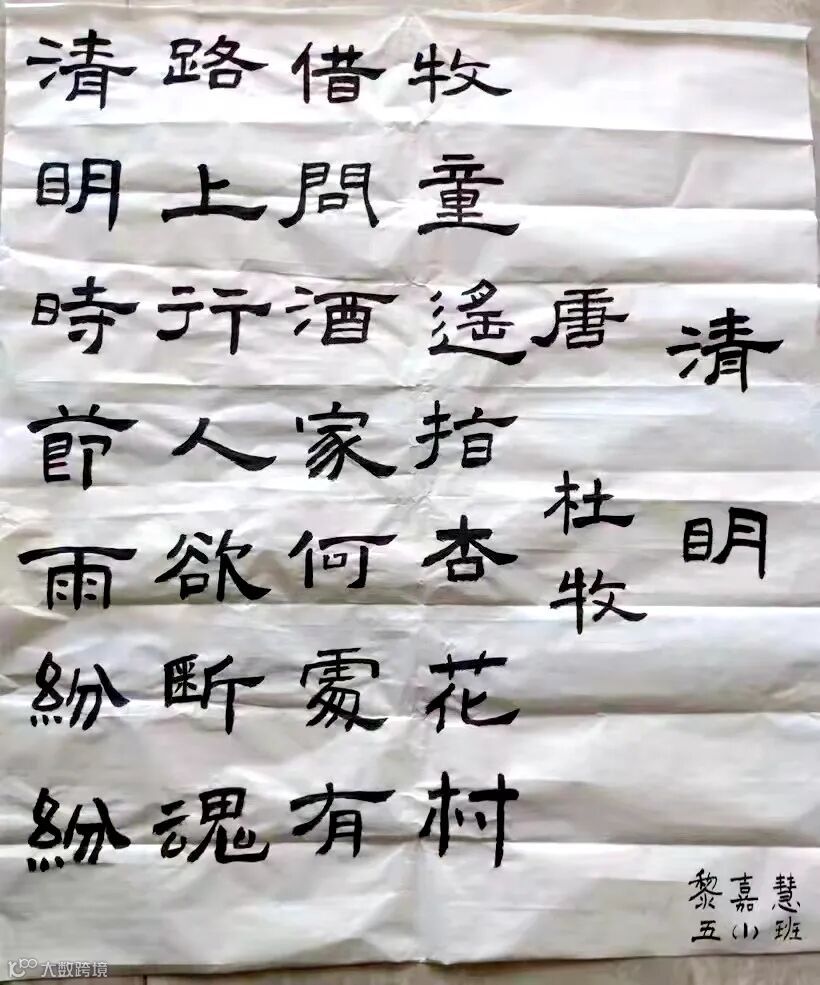 清明
唐 杜牧
清明時節雨紛紛
路上行人欲断魂
借問酒家何處有
牧童遙指杏花村
黎嘉慧
五(1)班
大数跨境